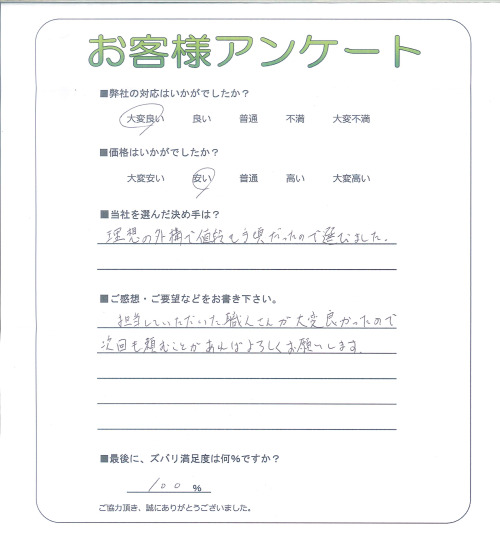 お客様アンケート
■弊社の対応はいかがでしたか？
大変良い 良い 普通 不満 大変不満
■価格はいかがでしたか？
大変安い 安い 普通 高い 大変高い
■当社を選んだ決め手は？
理想の外構で値段も手頃だったので選びました。
■ご感想・ご要望などをお書き下さい。
担当していただいた職人さんが大変良かったので
次回も頼むことがあればよろしくお願いします。
■最後に、ズバリ満足度は何％ですか？
100 %
ご協力頂き、誠にありがとうございました。